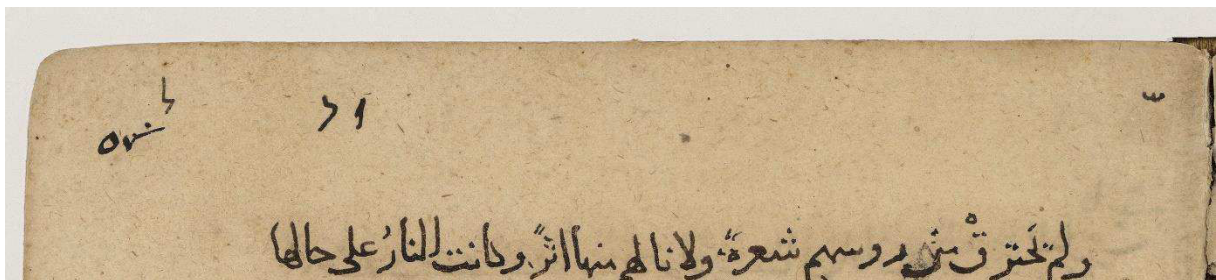 ولم تحترق من روسهم شعرة ولا نالهم منها اثر وكانت النار على حالها